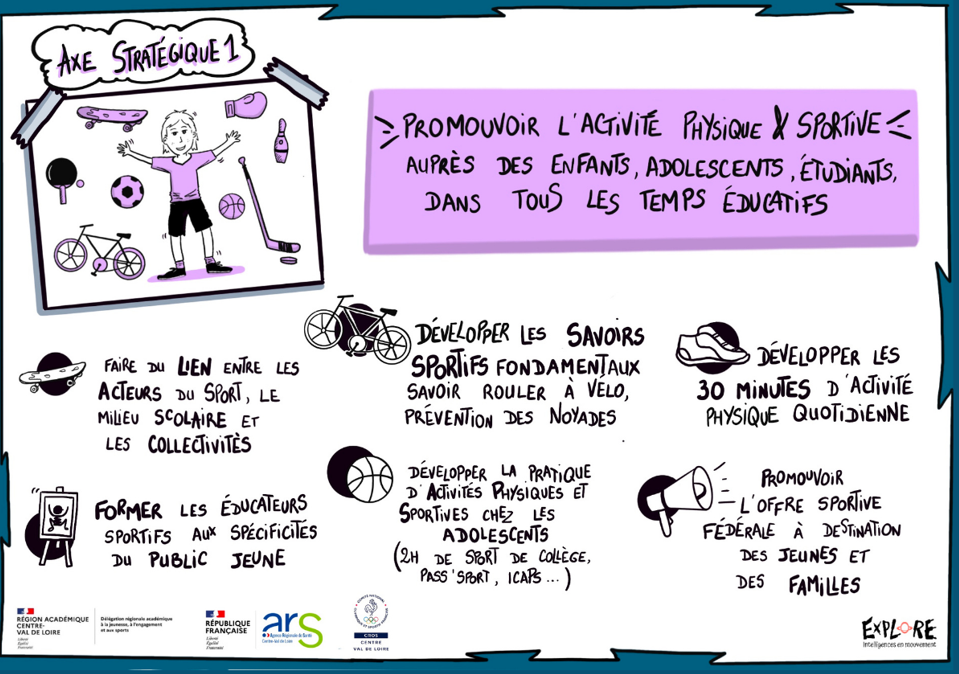 AXE STRATÉGIQUE 1
PROMOUVOIR L'ACTIVITÉ PHYSIQUE & SPORTIVE
AUPRÈS DES ENFANTS, ADOLESCENTS, ÉTUDIANTS,
DANS TOUS LES TEMPS ÉDUCATIFS
FAIRE DU LIEN ENTRE LES
ACTEURS DU SPORT, LE
MILIEU SCOLAIRE ET
LES COLLECTIVITÉS
DÉVELOPPER LES SAVOIRS
SPORTIFS FONDAMENTAUX
SAVOIR ROULER À VÉLO,
PRÉVENTION DES NOYADES
DÉVELOPPER LES
30 MINUTES D'ACTIVITÉ
PHYSIQUE QUOTIDIENNE
FORMER LES ÉDUCATEURS
SPORTIFS AUX SPÉCIFICITÉS
DU PUBLIC JEUNE
DÉVELOPPER LA PRATIQUE
D'ACTIVITÉS PHYSIQUES ET
SPORTIVES CHEZ LES
ADOLESCENTS
(2H DE SPORT DE COLLÈGE,
PASS'SPORT, ICAPS...)
PROMOUVOIR
L'OFFRE SPORTIVE
FÉDÉRALE À DESTINATION
DES JEUNES ET
DES FAMILLES
RÉGION ACADÉMIQUE
CENTRE-
VAL DE LOIRE
Liberté
Égalité
Fraternité
Délégation régionale académique
à la jeunesse, à l'engagement
et aux sports
RÉPUBLIQUE
FRANÇAISE
Liberté
Égalité
Fraternité
ars
Agence Régionale de Santé
Centre-Val de Loire
CROS
CENTRE
VAL DE LOIRE
EXPLORE
Intelligences en mouvement